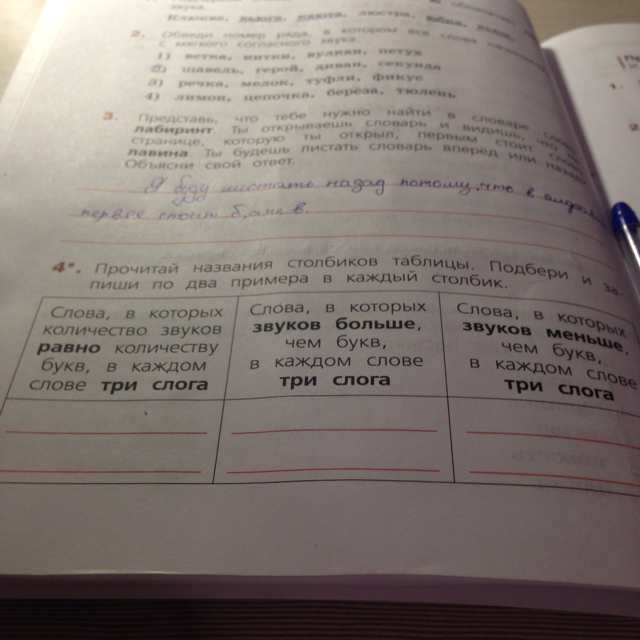 звука.
Клюква, вьюга, плюта, люстра, юбка, вьюн
2. Обведи номер ряда, в котором все слова
с мягкого согласного звука.
1) ветка, нитки, вулкан, петух
2) щавель, герой, диван, секунда
3) речка, мелок, туфли, фикус
4) лимон, цепочка, берёза, тюлень
3. Представь, что тебе нужно найти в словаре слово
лабиринт. Ты открываешь словарь и видишь, что на
странице, которую ты открыл, первым стоит слово
лавина. Ты будешь листать словарь вперёд или назад
Объясни свой ответ.
Я буду листать назад потому, что в
первее стоит б, а не в.
4*. Прочитай названия столбиков таблицы. Подбери и за-
пиши по два примера в каждый столбик.
Слова, в которых
количество звуков
равно количеству
букв, в каждом
слове три слога
Слова, в которых
звуков больше,
чем букв,
в каждом слове
три слога
Слова, в которых
звуков меньше,
чем букв,
в каждом слове
три слога